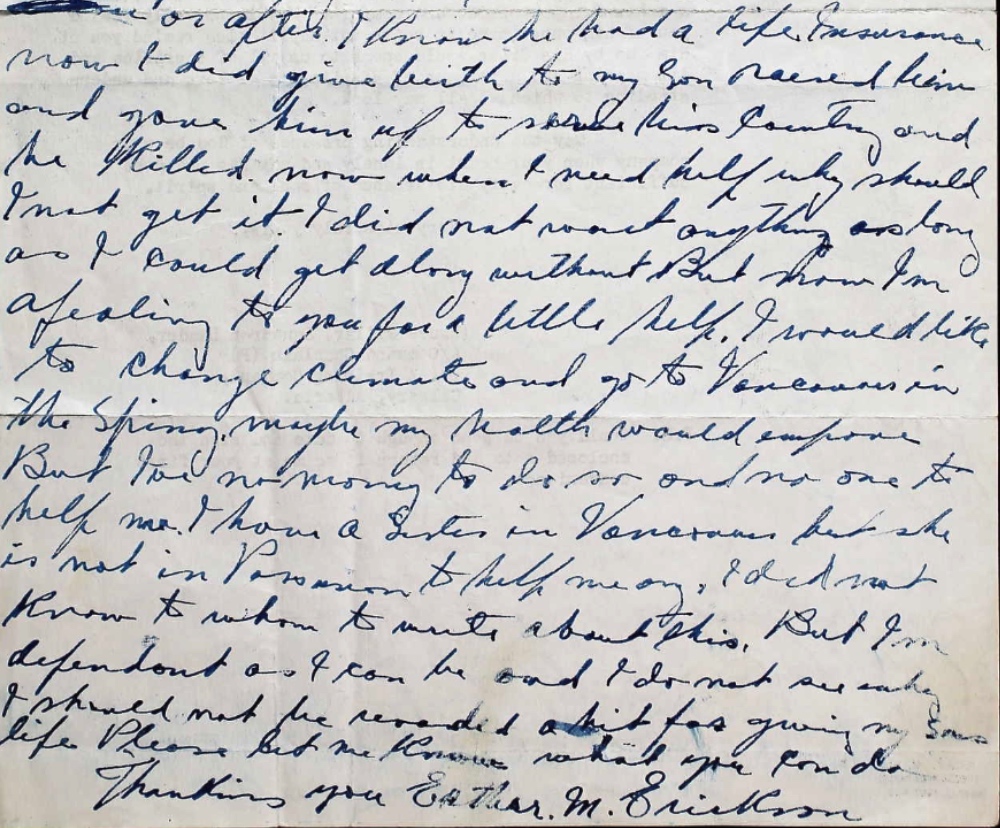 or after. I Know he had a life Insurance
now I did give birth to my Son raised him
and gave him up to serve his Country and
he Killed now when I need help why should
I not get it. I did not want anything as long
as I could get along without But now I'm
apealing to you for a little help. I would like
to change climate and go to Vancouver in
the Spring, maybe my health would improve
But I've no money to do so and no one to
help me. I have a Sister in Vancouver but she
is not in Posision to help me any. I did not
Know to whom to write about this. But I'm
dependant as I can be and I do not see why
I should not be rewarded a bit for giving my Sons
life Please let me Know what you can do
Thanking you Esther. M. Erickson